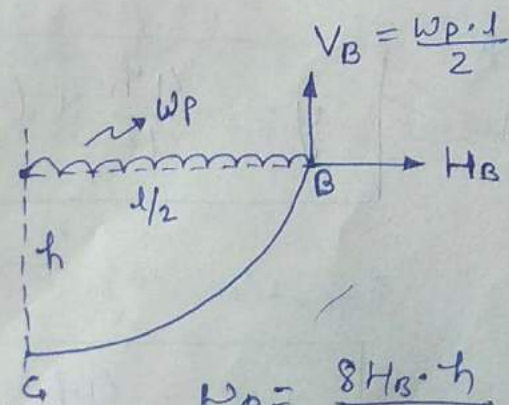 V_B = \frac{w_p \cdot l}{2}
w_p
H_B
B
l/2
h
C
w_p = 8H_B \cdot h